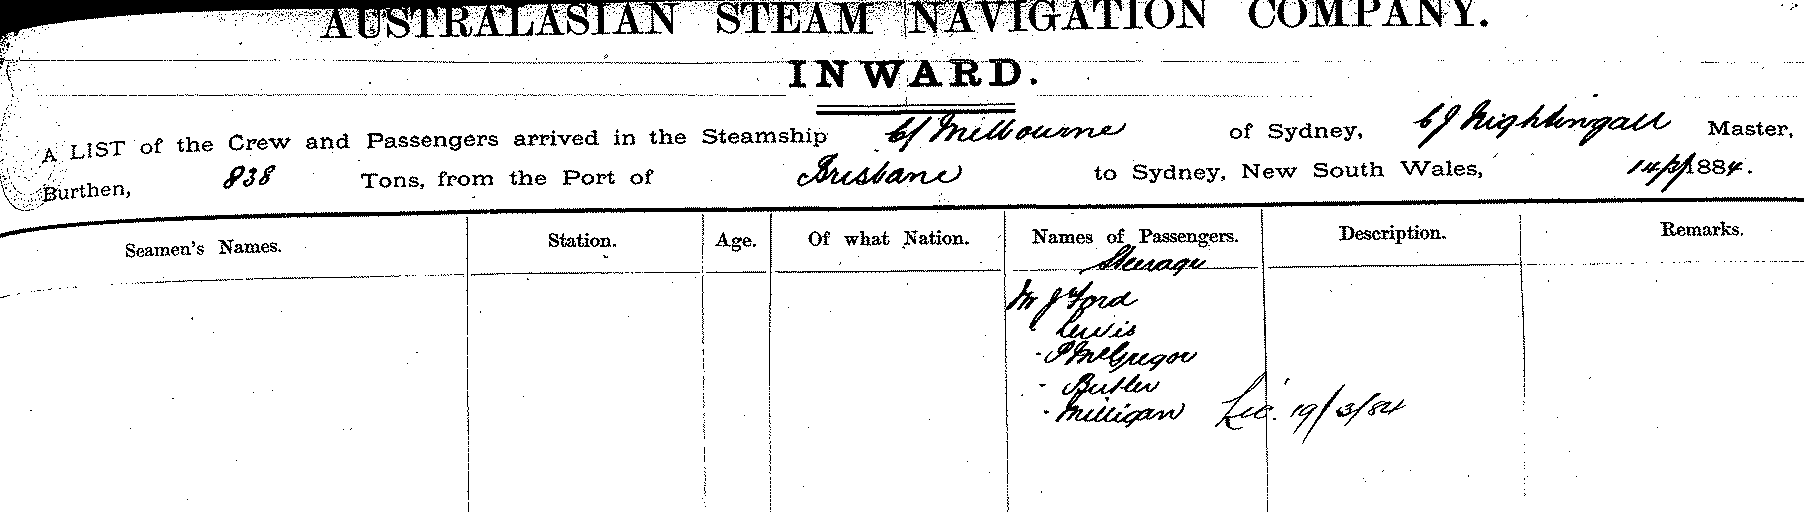 AUSTRALASIAN STEAM NAVIGATION COMPANY.
INWARD.
A LIST of the Crew and Passengers arrived in the Steamship C/ Melbourne of Sydney, C J Nightingall Master,
Burthen, 838 Tons, from the Port of Brisbane to Sydney, New South Wales, 14/3/1884.
Seamen's Names. Station. Age. Of what Nation. Names of Passengers. Description. Remarks.
Steerage
Mr J Ford
- Lewis
- P McGregor
- Butler
- Milligan 19/3/84